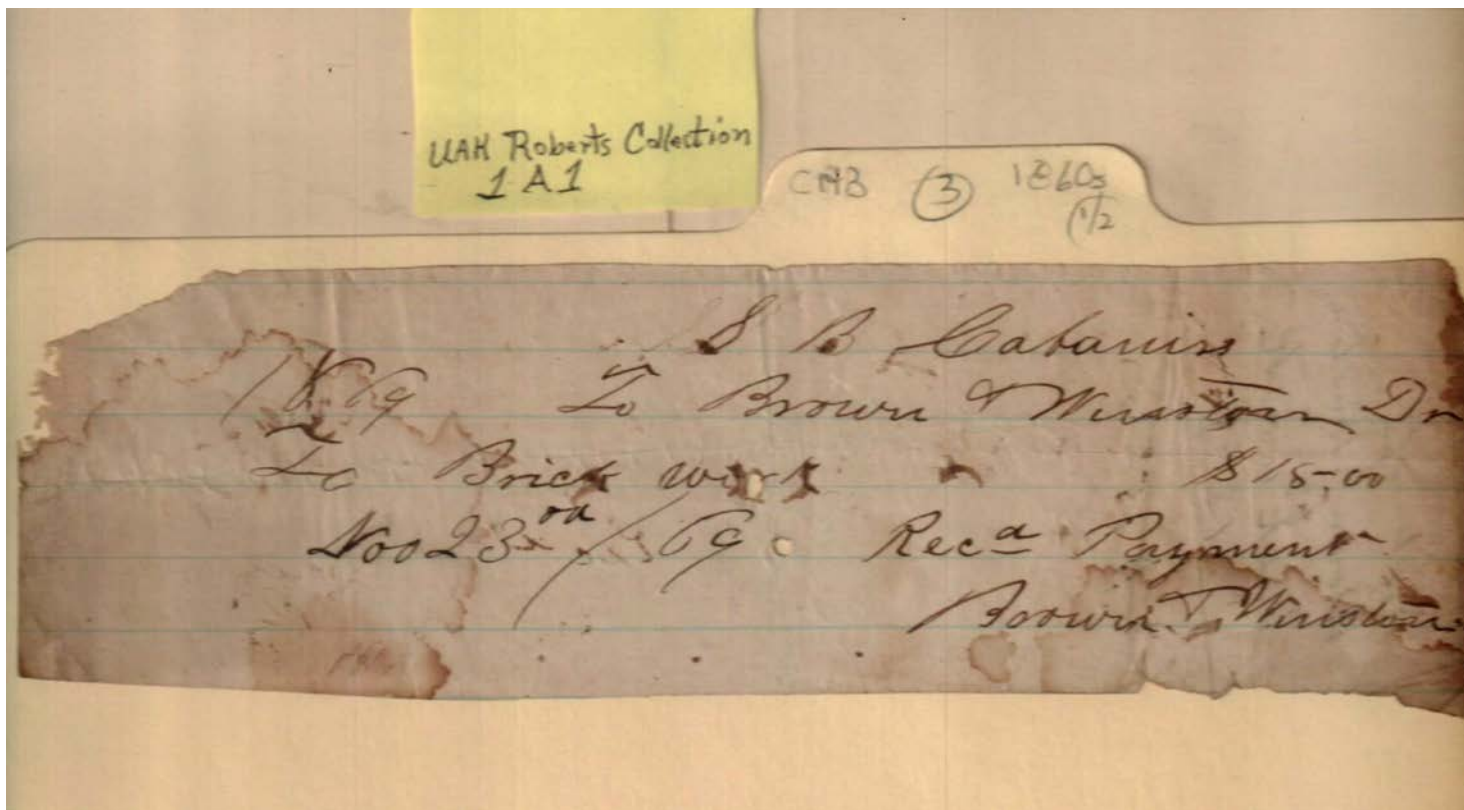 UAH Roberts Collection
1A1
CMB 3 1860s
1/2
S B Cabaniss
1869 To Brown & Winston Dr
To Brick work $15.00
Nov 23rd /69 Recd Payment
Brown & Winston